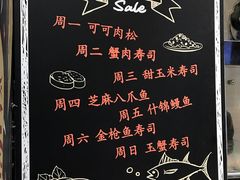 Sale
周一 可可肉松
周二 蟹肉寿司
周三 甜玉米寿司
周四 芝麻八爪鱼
周五 什锦鳗鱼
周六 金枪鱼寿司
周日 玉蟹寿司